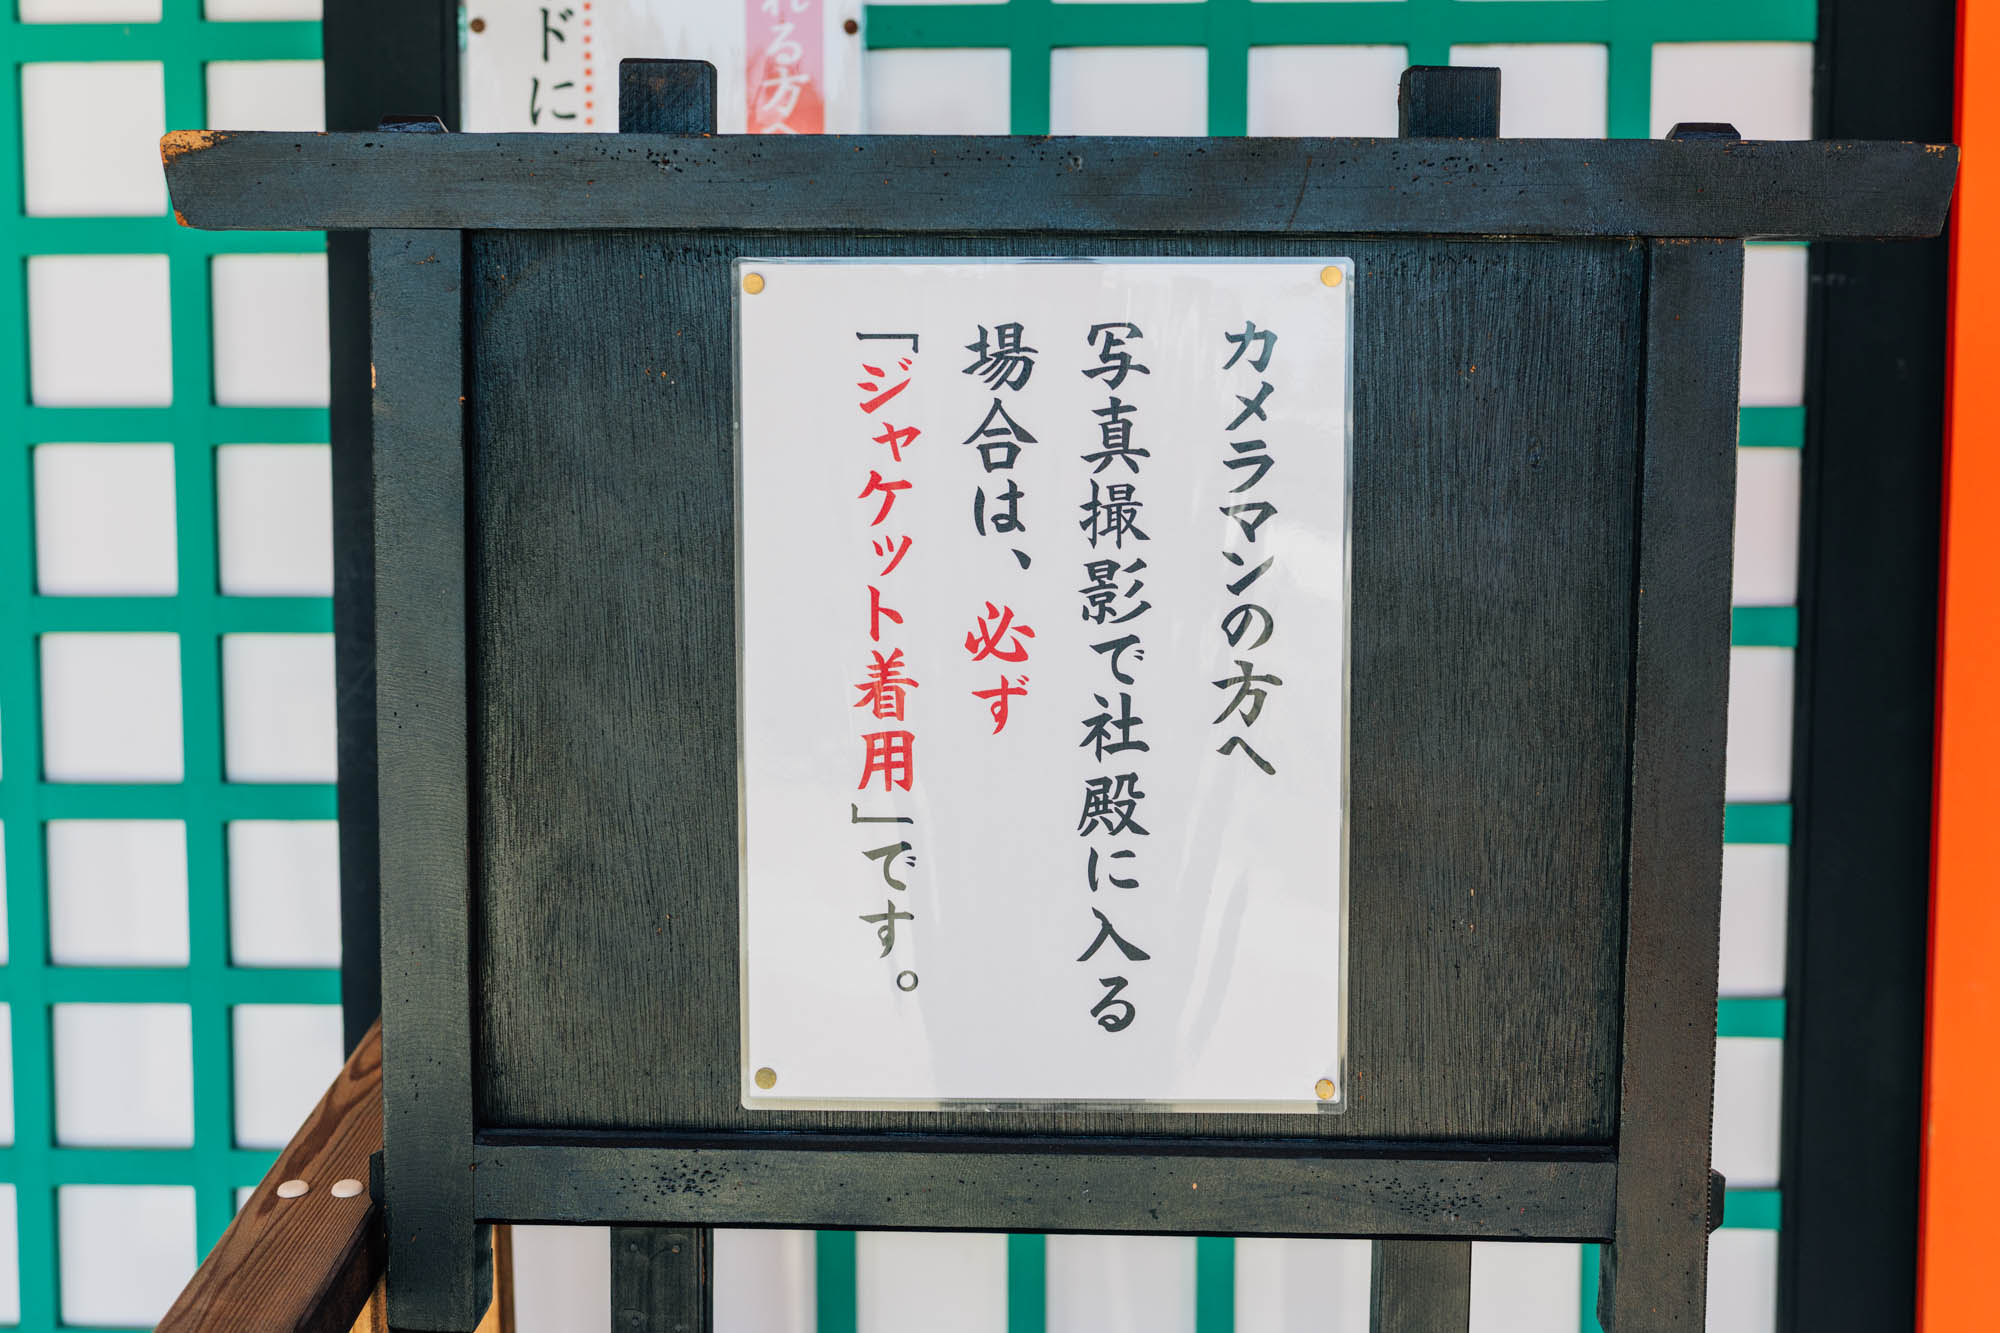 カメラマンの方へ
写真撮影で社殿に入る
場合は、必ず
「ジャケット着用」です。
れる方へ
ドに